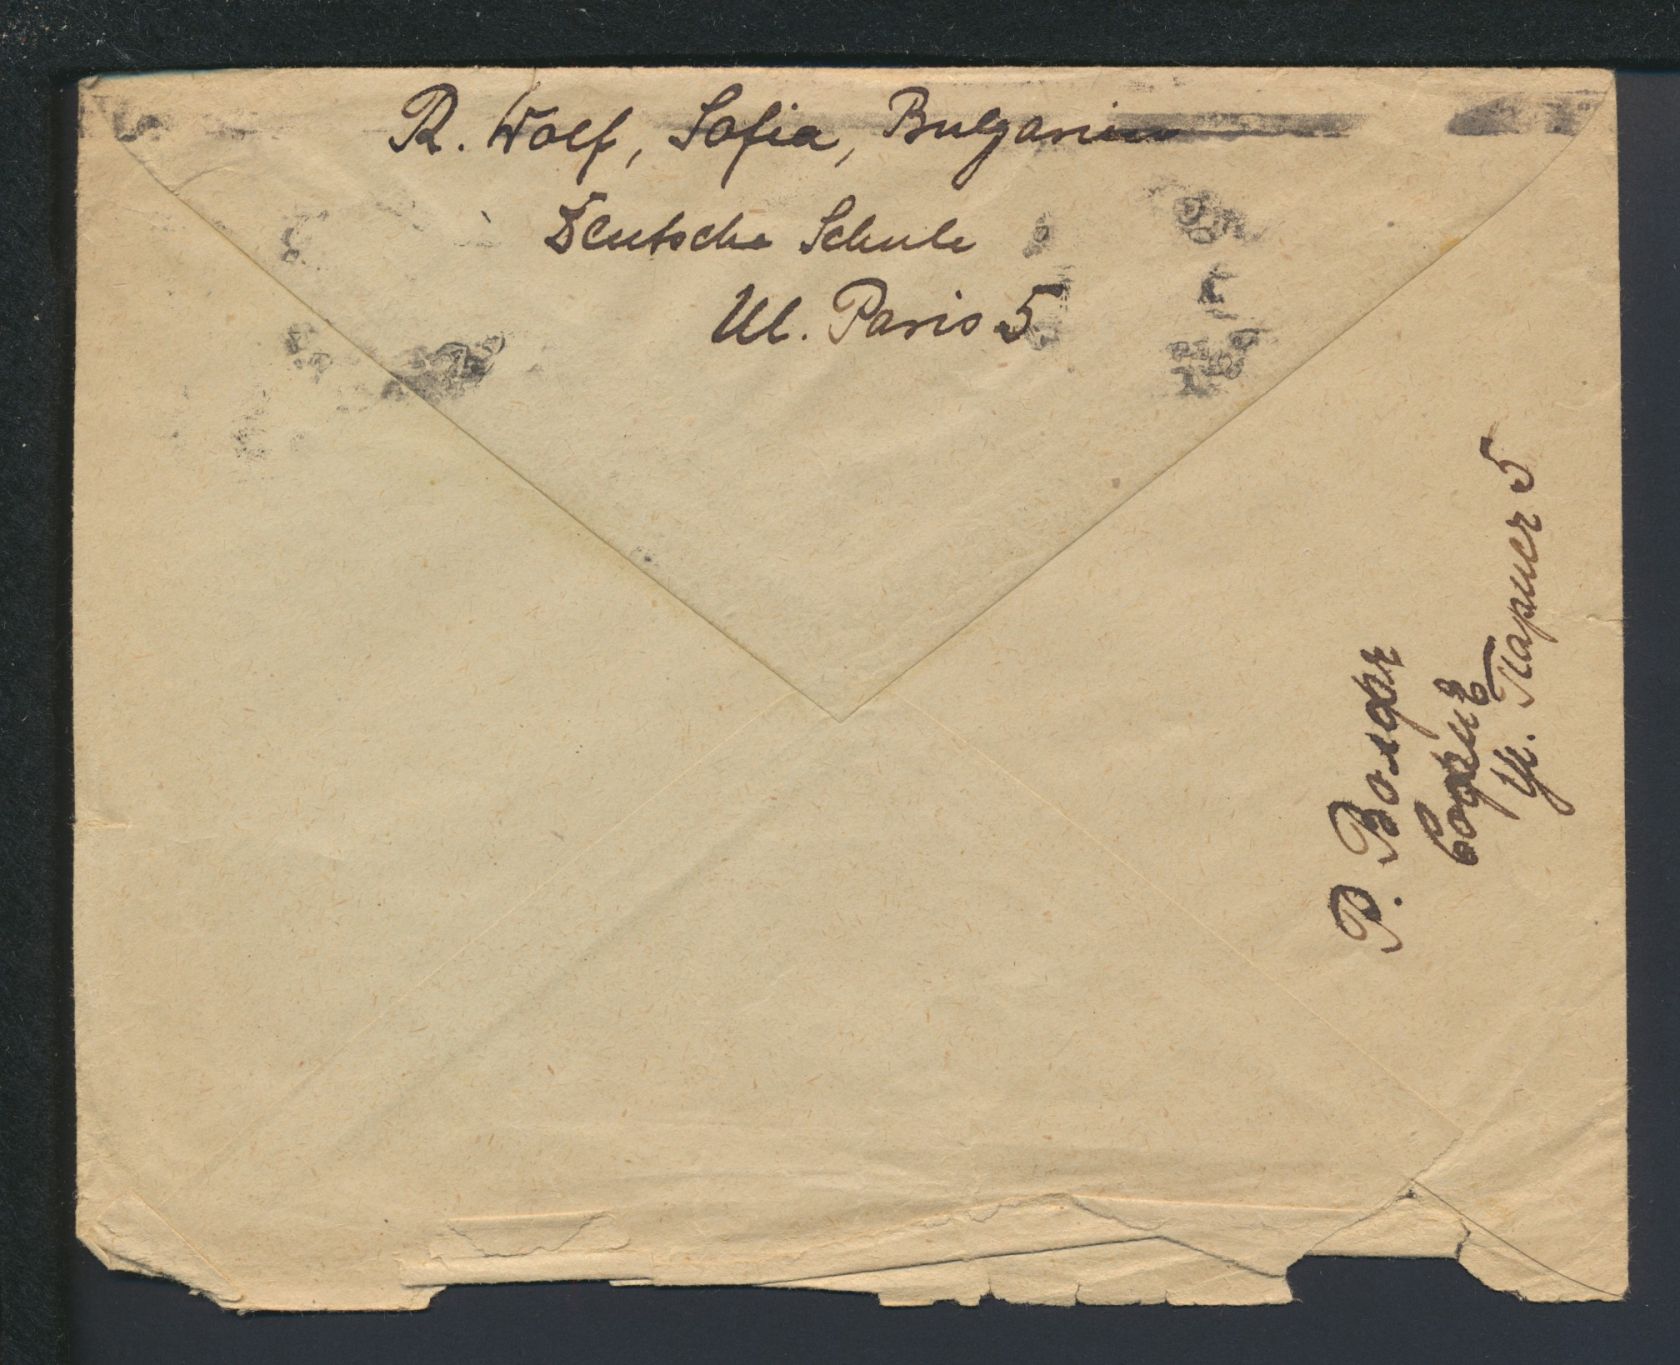 R. Wolf, Sofia, Bulgarien
Deutsche Schule
Ul. Paris 5
Р. Волфъ
София
Ул. Парисъ 5